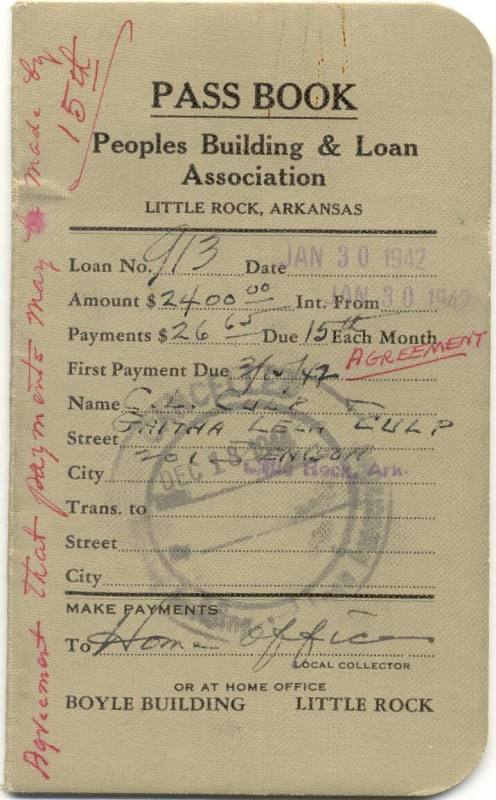 PASS BOOK
Peoples Building & Loan
Association
LITTLE ROCK, ARKANSAS
Loan No. 913 Date JAN 30 1942
Amount $ 2400 00 Int. From JAN 30 1942
Payments $ 26 65 Due 15th Each Month
AGREEMENT
First Payment Due 3/15/42
Name C. L. CULP
LELA CULP
Street
City Little Rock, Ark.
Trans. to
Street
City
CANCELLED
DEC 18
MAKE PAYMENTS
To Home Office
LOCAL COLLECTOR
OR AT HOME OFFICE
BOYLE BUILDING LITTLE ROCK
Agreement that payments may be made by
15th